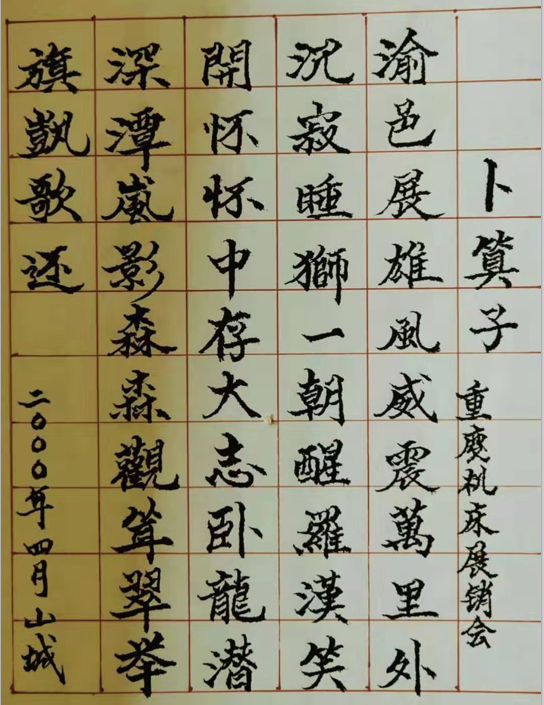 卜算子
重庆机床展销会
渝邑展雄風威震萬里外
沉寂睡獅一朝醒羅漢笑
開怀怀中存大志卧龍潜
深潭嵐影森森觀耸翠举
旗凱歌还
二〇〇〇年四月山城